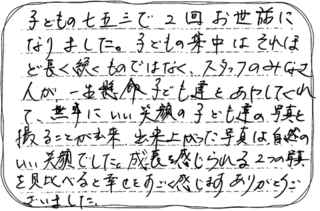 子どもの七五三で2回お世話に
なりました。子どもの集中はそれほ
ど長く続くものではなく、スタッフのみなさ
人が一生懸命子ども達をあやしてくれ
て、無事にいい笑顔の子ども達の写真を
撮ることが出来、出来上がった写真は自然の
いい笑顔でした。成長を感じられる2つの写真
を見比べると幸せをすごく感じます。ありがとうご
ざいました。